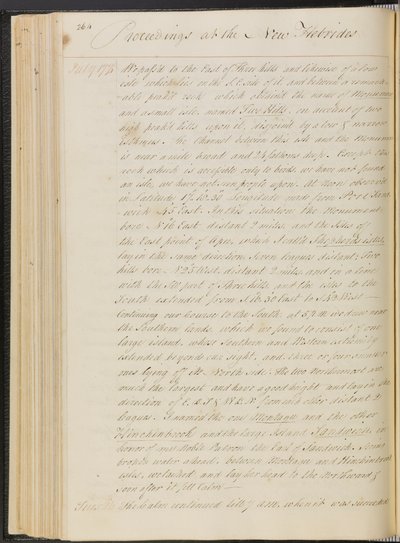 264
Proceedings at the New Hebrides
July 1774 We pass'd to the East of Three hills and likewise of a low
isle which lies on the S.E. side of it, and between a remark-
able peaked rock which obtained the name of Monument
and a small isle named Two Hills, on account of two
high peaked hills upon it, disjoined by a low & narrow
isthmus. The Channel between this isle and the Monument
is near a mile broad and 24 fathoms deep. Except this
rock which is accessible only to birds we have not found
an isle, we have not seen people upon. At Noon observed
in Latitude 17.. Longitude made from Port Sand-
wich 45' East. In this situation the Monument
bore N 16 East distant 2 miles, and the Isles off
the East point of Apee, which I called Shepherds isles,
lay in the same direction seven leagues distant; Two
hills bore N 25 West distant 2 miles, and in a line
with the SW part of Three hills, and the isles to the
South extended from S 16.30 East to S 42 West —
Continuing our course to the South, at 5 p.m we drew near
the Southern lands, which we found to consist of one
large island, whose Southern and Western extremity
extended beyond our sight, and three or four smaller
ones lying off its North side. The two Northermost are
much the largest and have a good height and lay in the
direction of E & S & W & N from each other distant 2
leagues. I named the one Montagu and the other
Hinchenbrook and the large Island Sandwich in
honor of my Noble Patron the Earl of Sandwich. Seeing
broken water ahead between Montagu and Hinchinbrook
isles, we tacked and lay her head to the Northward &
soon after it fell Calm —
The Calm continued till 7 am when it was succeeded